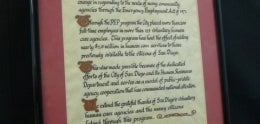 change in responding to the needs of many community
agencies through the Emergency Employment Act of 1971.
Through the PEP program the City placed more than 100
full-time employees in more than 25 voluntary human
care agencies. This program has had the effect of adding
nearly $1.2 million in human care services to those
previously available to the citizens of San Diego.
This was made possible because of the dedicated
efforts of the City of San Diego and the Human Resources
Department and serves as a model of public-private
agency cooperation that has commanded national attention.
We extend the grateful thanks of San Diego's voluntary
human care agencies and the many citizens
through this program.